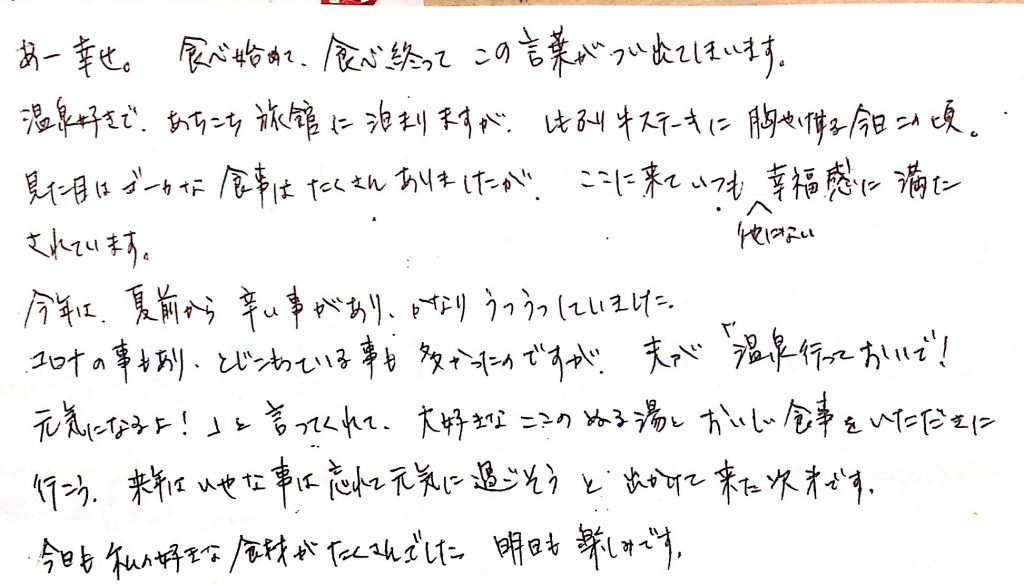 あー幸せ。 食べ始めて、食べ終って この言葉がつい出てしまいます。
温泉好きで、あちこち旅館に泊まりますが、しもふり牛ステーキに胸やけする今日この頃。
見た目はゴーカな食事はたくさんありましたが、 ここに来ていつも 幸福感に満た
他にない
されています。
今年は、夏前から辛い事があり、かなりうつうつしていました。
コロナの事もあり、とじこもっている事も多かったのですが、 夫が「温泉行っておいで!
元気になるよ!」と言ってくれて、大好きなここのぬる湯とおいしい食事をいただきに
行こう、来年はいやな事は忘れて元気に過ごそうと出かけて来た次才です。
今日も私の好きな食材がたくさんでした。 明日も楽しみです。